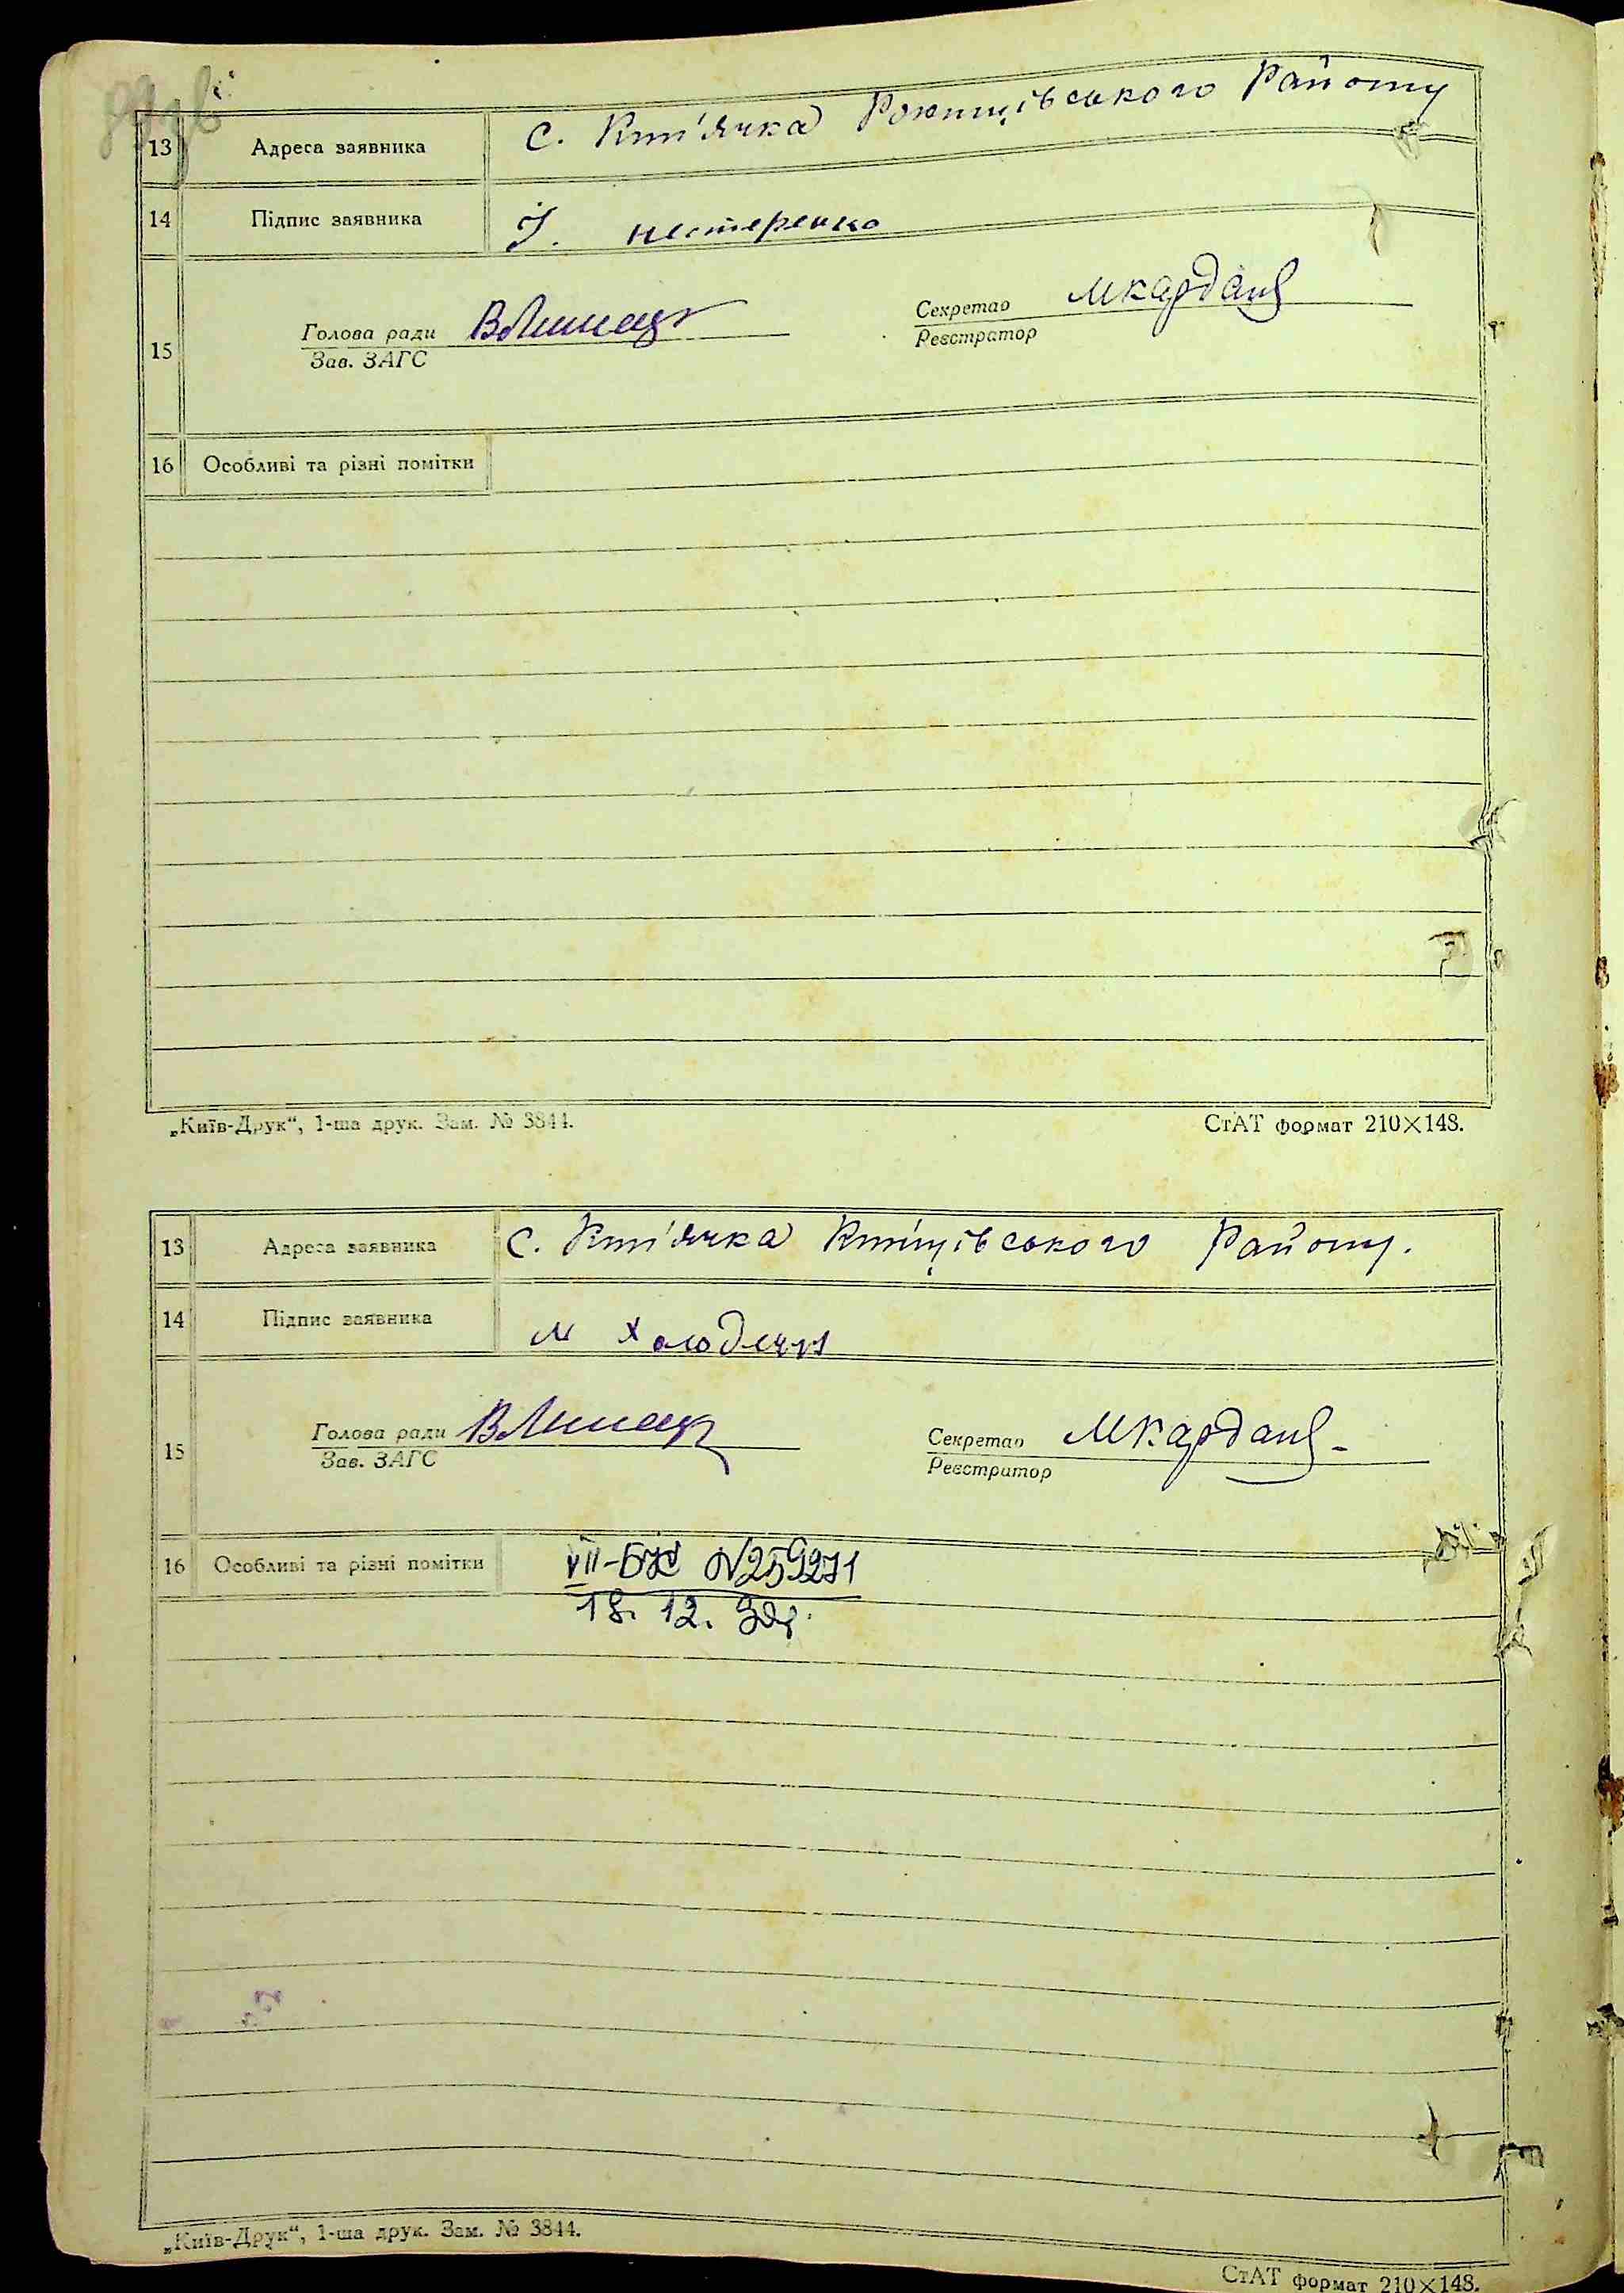 13 Адреса заявника с. Кип'ячка Району
14 Підпис заявника І. нестеренко
15 Голова ради Секретар
Зав. ЗАГС Реєстратор
16 Особливі та різні помітки
„Київ-Друк“, 1-ша друк. Зам. № 3844. СтАТ формат 210×148.
13 Адреса заявника с. Кип'ячка Району.
14 Підпис заявника м
15 Голова ради Секретар
Зав. ЗАГС Реєстратор
16 Особливі та різні помітки VII-БЖ N259271
18. 12.
„Київ-Друк“, 1-ша друк. Зам. № 3844.
СтАТ формат 210×148.